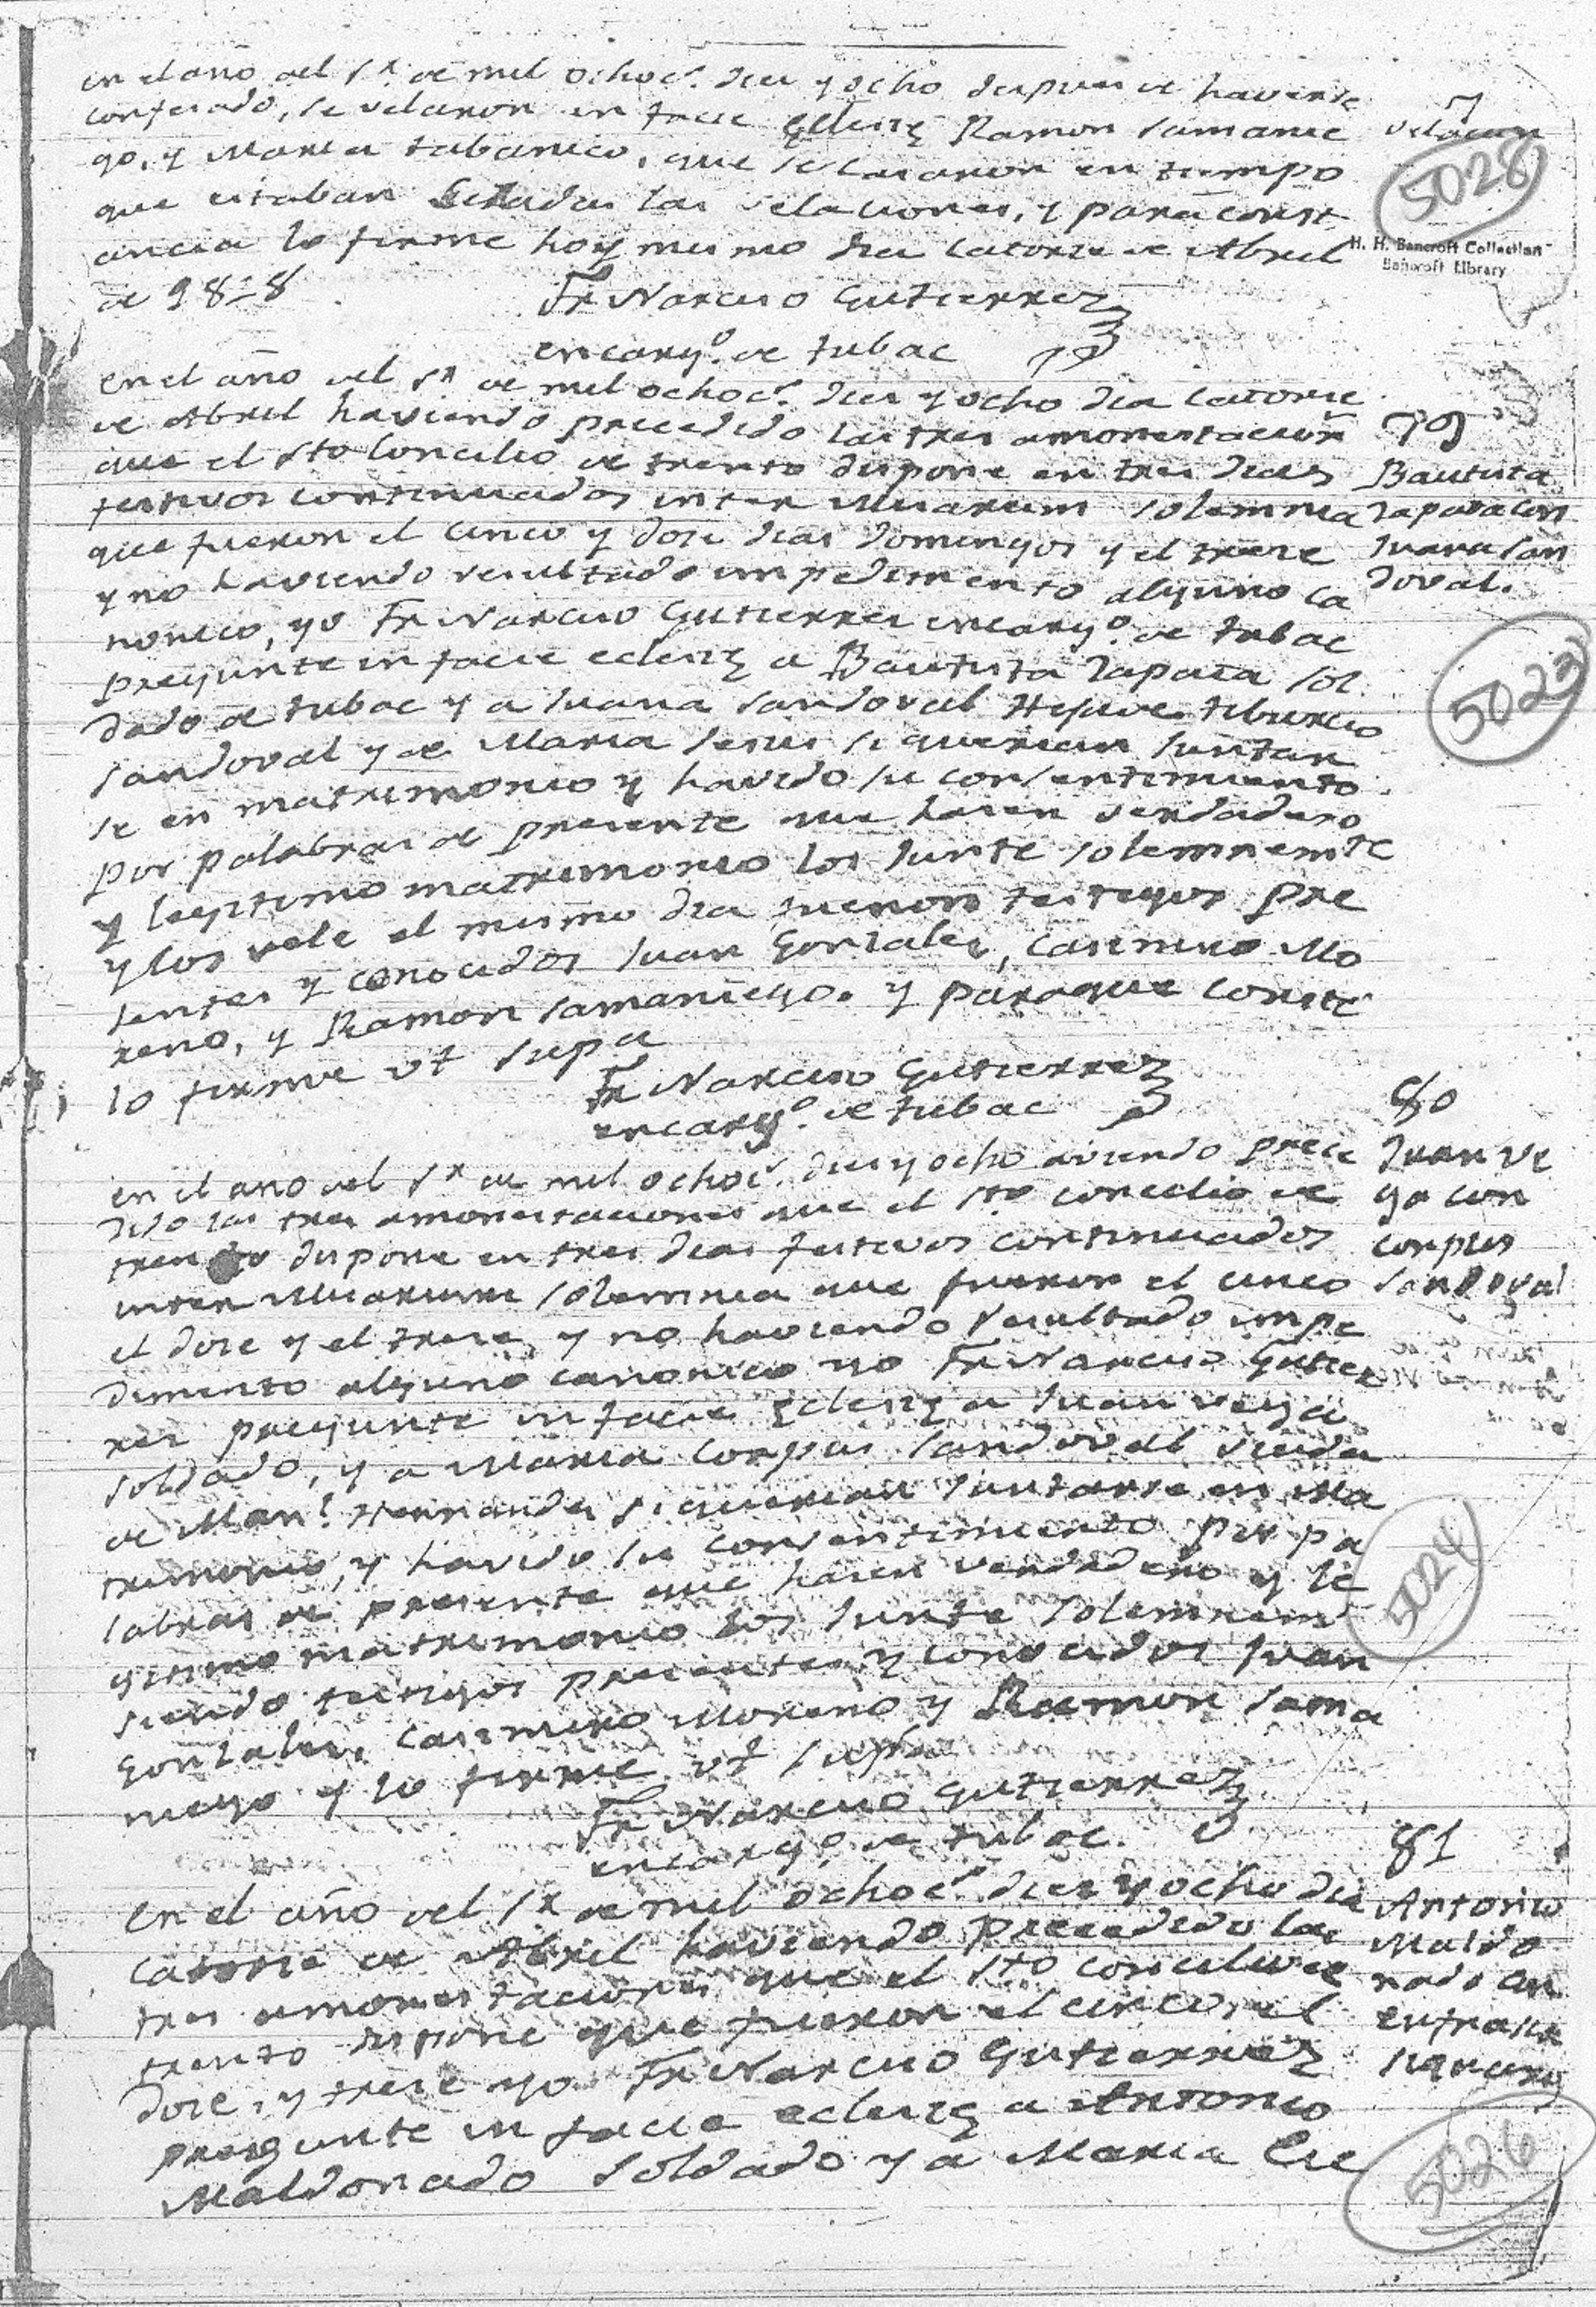 en el año del Sr. de mil ochoc.s diez y ocho despues de haverse
confesado, se velaron in facie Eclesię Ramon Samanie
go, y Maria tubanico, que se casaron en tiempo
que estaban serradas las velaciones, y para const
ancia lo firme hoy mismo dia catorze de Abril
de 1818
Fr Narciso Gutierrez
encargo. de tubac
velacion
5028
H. H. Bancroft Collection
Bancroft Library
en el año del Sr de mil ochoc.s diez y ocho dia catorze
de Abril haviendo precedido las tres amonestacion.s
que el Sto Concilio de trento dispone en tres dias
festivos continuados inter Misarum solemnia
que fueron el cinco y doze dias domingos y el treze
y no haviendo resultado impedimento alguno ca
nonico, yo Fr Narciso Gutierrez encargo. de tubac
pregunte in facie eclesię a Bautista Zapata sol
dado de tubac y a Juana Sandoval Hija de tiburcio
Sandoval y de Maria Jesus si querian juntar
se en matrimonio y havido su consentimiento
por palabras de presente que hazen verdadero
y legitimo matrimonio los junte solemnemte
y los vele el mismo dia fueron testigos pre
sentes y conocidos Juan Gonzales, Casimiro Mo
reno, y Ramon Samaniego. y para que conste
lo firme ut supa
Fr Narciso Gutierrez
encargo. de tubac
79
Bautista
Zapata con
Juana San
doval.
5023
en el año del Sr de mil ochoc.s diez y ocho aviendo prece
dido las tres amonestaciones que el Sto concilio de
trento dispone en tres dias festivos continuados
inter Misarum solemnia que fueron el cinco
el doze y el treze, y no haviendo resultado impe
dimento alguno canonico yo Fr Narciso Gutier
rez pregunte in facie eclesię a Juan vega
soldado, y a Maria Corpus Sandoval viuda
de Man.l Hernandez si querian juntarse en Ma
trimonio, y havido su consentimiento por pa
labras de presente que hazen verdadero y le
gitimo matrimonio los junte solemnemte
siendo testigos presentes y conocidos Juan
Gonzales, Casimiro Moreno y Ramon Sama
niego y lo firme ut supa
Fr Narciso Gutierrez
encargo. de tubac.
80
Juan ve
ga con
corpus
Sandoval
5024
En el año del Sr de mil ochoc.s diez y ocho dia
catorze de Abril haviendo precedido las
tres amonestaciones que el Sto concilio de
trento dispone que fueron el cinco, el
doze, y treze yo Fr Narciso Gutierrez
pregunte in facie eclesię a Antonio
Maldonado soldado y a Maria Eu
81
Antonio
Maldo
nado con
5026